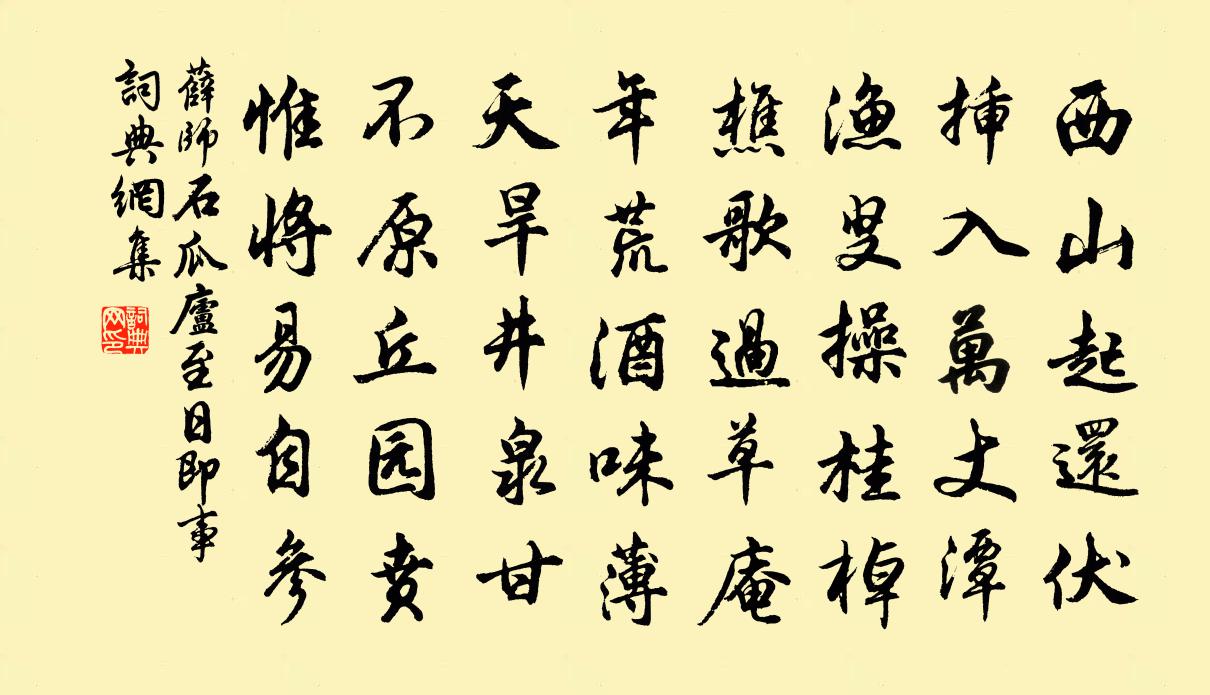 西山起還伏
挿入萬丈潭
漁叟操桂棹
樵歌過草庵
年荒酒味薄
天旱井泉甘
不原丘园賁
惟將易自參
薛師石瓜廬至日即事
詞典網集
詞典网印